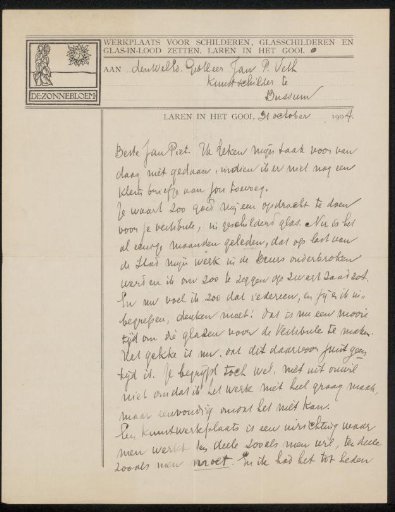 WERKPLAATS VOOR SCHILDEREN, GLASSCHILDEREN EN
GLAS-IN-LOOD ZETTEN. LAREN IN HET GOOI.
DE ZONNEBLOEM
AAN den Heer Jan P. Veth
Kunstschilder te
Bussum
LAREN IN HET GOOI, 31 october 1904.
Beste Jan Piet. Ik reken mijn taak voor van
daag niet gedaan, indien ik er niet nog een
klein briefje aan jou toevoeg.
Je waart zoo goed mij een opdracht te doen
voor je vestibule, in geschilderd glas. Nu is het
al eenige maanden geleden, dat op last van
de Stad mijn werk in de Beurs onderbroken
werd en ik om zoo te zeggen op zwart zaad zat.
En nu voel ik zoo dat iedereen, en jij en ik in
begrepen, denken moet: dat is nu een mooie
tijd om die glazen voor de Vestibule te maken.
Het gekke is nu, dat dit daarvoor juist geen
tijd is. Je begrijpt toch wel, niet uit onwil
niet omdat ik het werk niet heel graag maak,
maar eenvoudig omdat het niet kan.
Een kunstwerkplaats is een inrichting waar
men werkt ten deele zooals men wil, ten deele
zooals men moet. En ik had het tot heden